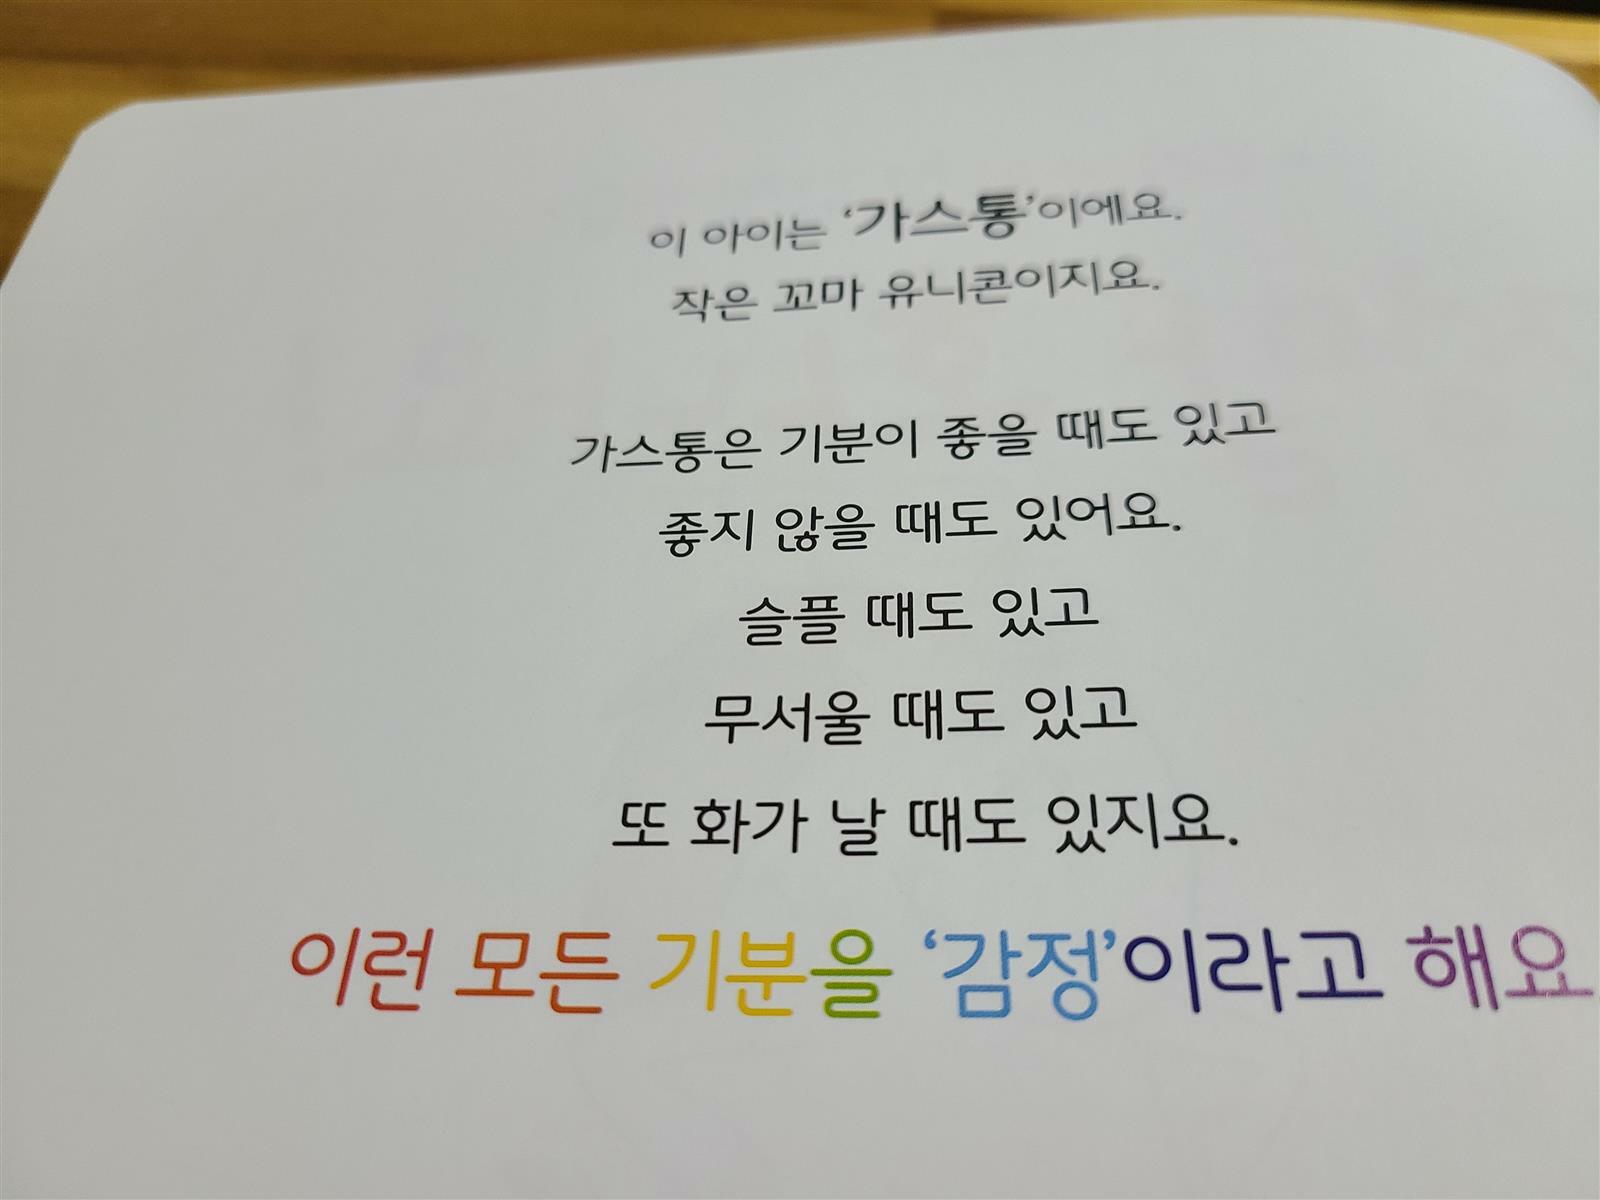 이 아이는 ‘가스통’이에요.
작은 꼬마 유니콘이지요.
가스통은 기분이 좋을 때도 있고
좋지 않을 때도 있어요.
슬플 때도 있고
무서울 때도 있고
또 화가 날 때도 있지요.
이런 모든 기분을 ‘감정’이라고 해요